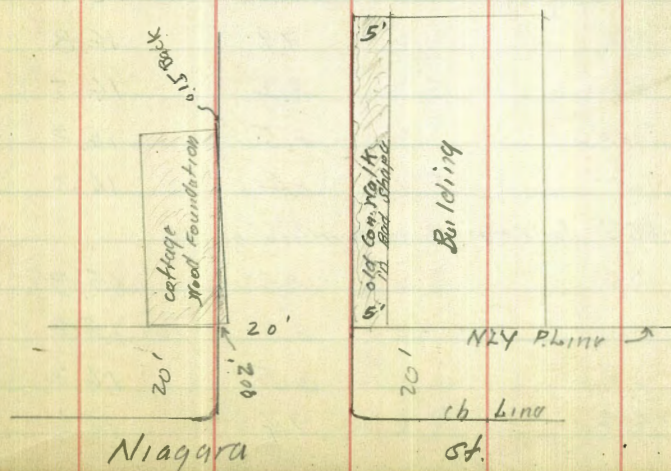 0.15 Back
5'
cottage
Wood Foundation
old Con. Walk
in Bad Shape
Building
5'
20'
NLY P. Line
20'
20'
ch Line
Niagara St.